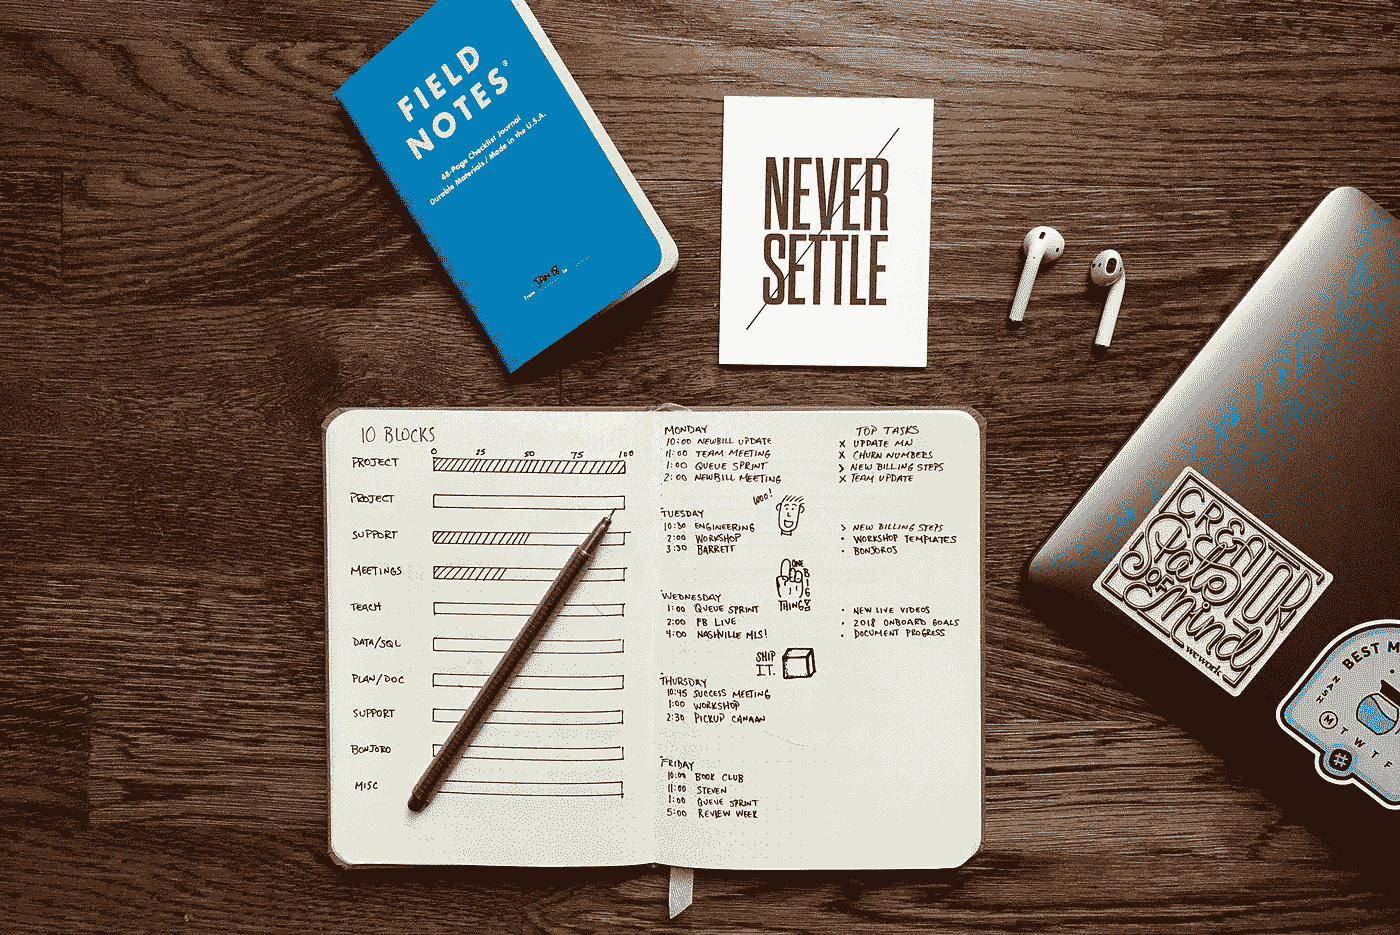 FIELD
NOTES®
48-Page Checklist Journal
Durable Materials / Made in the U.S.A.
From JAN 18 to
NEVER
SETTLE
10 BLOCKS
0 25 50 75 100
PROJECT
PROJECT
SUPPORT
MEETINGS
TEACH
DATA/SQL
PLAN/DOC
SUPPORT
BONJORO
MISC
MONDAY
10:00 NEWBILL UPDATE
11:00 TEAM MEETING
1:00 QUEUE SPRINT
2:00 NEWBILL MEETING
WOO!
TUESDAY
10:30 ENGINEERING
2:00 WORKSHOP
3:30 BARRETT
ONE
BIG
THING
WEDNESDAY
1:00 QUEUE SPRINT
2:00 FB LIVE
4:00 NASHVILLE MLS!
SHIP
IT.
THURSDAY
10:45 SUCCESS MEETING
1:00 WORKSHOP
2:30 PICKUP CANAAN
FRIDAY
10:00 BOOK CLUB
11:00 STEVEN
1:00 QUEUE SPRINT
5:00 REVIEW WEEK
TOP TASKS
X UPDATE MN
X CHURN NUMBERS
> NEW BILLING STEPS
X TEAM UPDATE
> NEW BILLING STEPS
• WORKSHOP TEMPLATES
• BONJOROS
• NEW LIVE VIDEOS
• 2018 ONBOARD GOALS
• DOCUMENT PROGRESS
CREATOR
State
OF
Mind
wework
BEST M
NASH
M T W T F
#